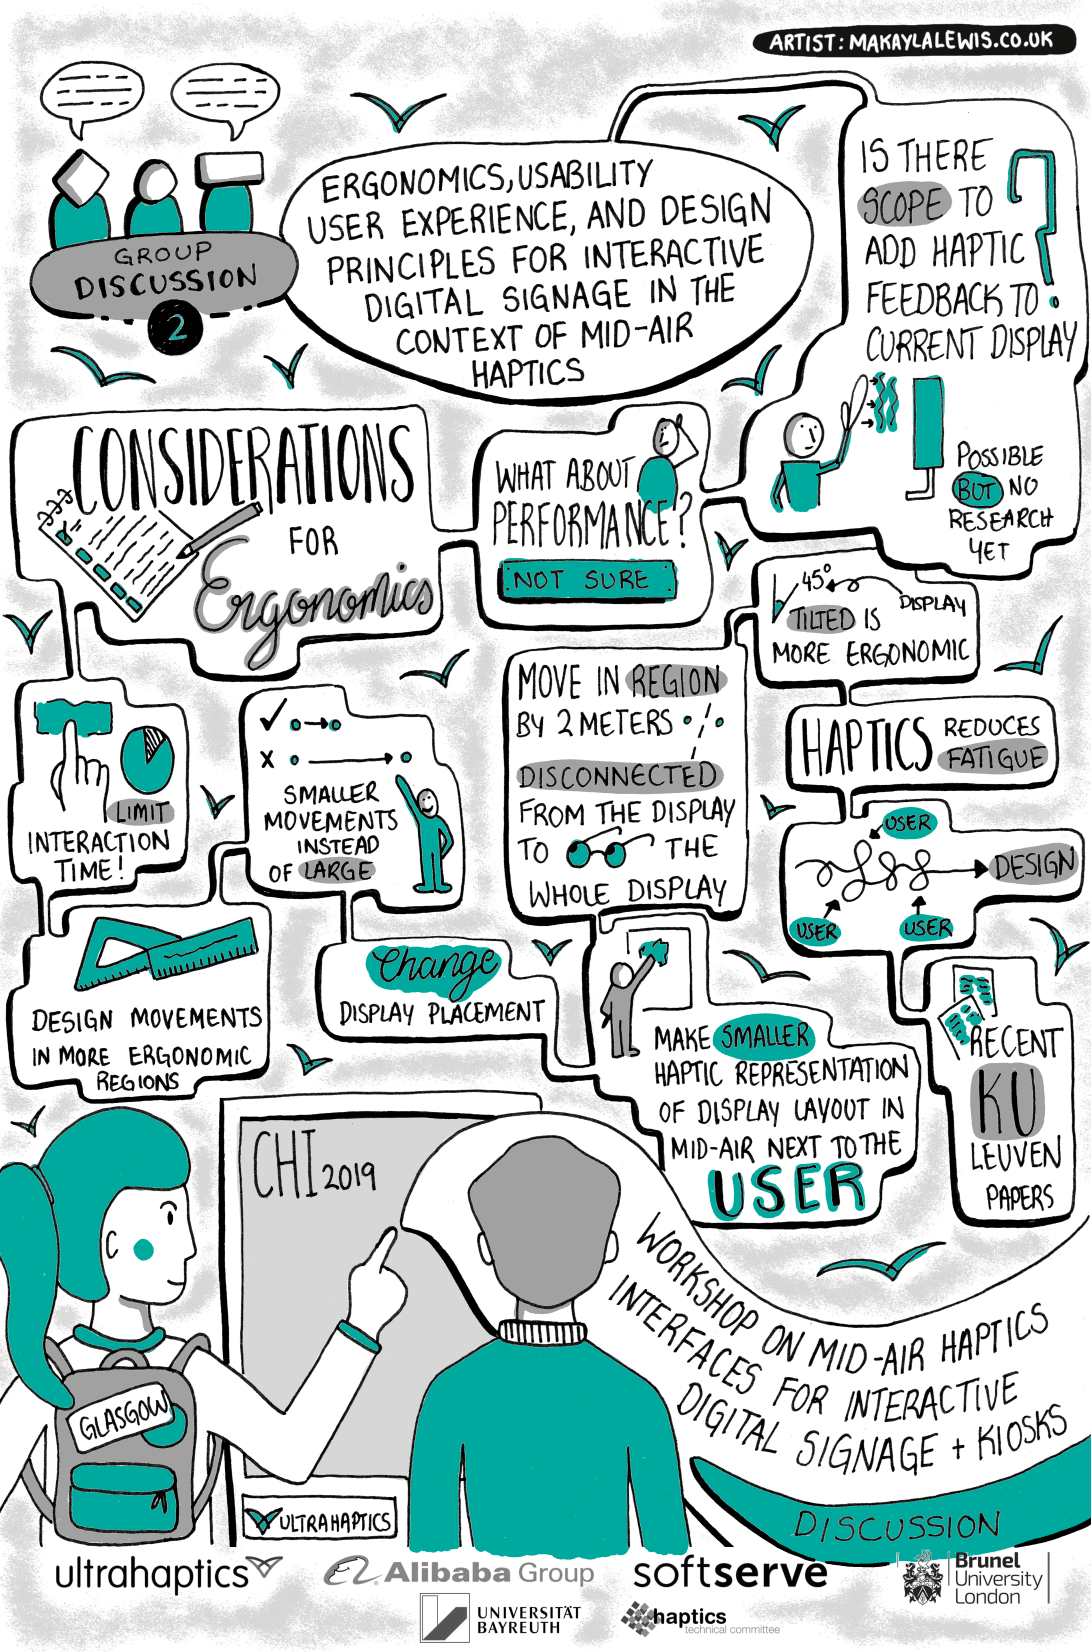 ARTIST: MAKAYLALEWIS.CO.UK
GROUP
DISCUSSION
2
ERGONOMICS, USABILITY
USER EXPERIENCE, AND DESIGN
PRINCIPLES FOR INTERACTIVE
DIGITAL SIGNAGE IN THE
CONTEXT OF MID-AIR
HAPTICS
IS THERE
SCOPE TO
ADD HAPTIC
FEEDBACK TO
CURRENT DISPLAY
?
POSSIBLE
BUT NO
RESEARCH
YET
CONSIDERATIONS
FOR
Ergonomics
WHAT ABOUT
PERFORMANCE?
NOT SURE
45°
DISPLAY
TILTED IS
MORE ERGONOMIC
LIMIT
INTERACTION
TIME!
SMALLER
MOVEMENTS
INSTEAD
OF LARGE
MOVE IN REGION
BY 2 METERS
DISCONNECTED
FROM THE DISPLAY
TO THE
WHOLE DISPLAY
HAPTICS REDUCES
FATIGUE
USER
DESIGN
USER
USER
DESIGN MOVEMENTS
IN MORE ERGONOMIC
REGIONS
Change
DISPLAY PLACEMENT
MAKE SMALLER
HAPTIC REPRESENTATION
OF DISPLAY LAYOUT IN
MID-AIR NEXT TO THE
USER
RECENT
KU
LEUVEN
PAPERS
CHI 2019
GLASGOW
ULTRAHAPTICS
WORKSHOP ON MID-AIR HAPTICS
INTERFACES FOR INTERACTIVE
DIGITAL SIGNAGE + KIOSKS
DISCUSSION
ultrahaptics
Alibaba Group
softserve
Brunel
University
London
UNIVERSITÄT
BAYREUTH
haptics
technical committee